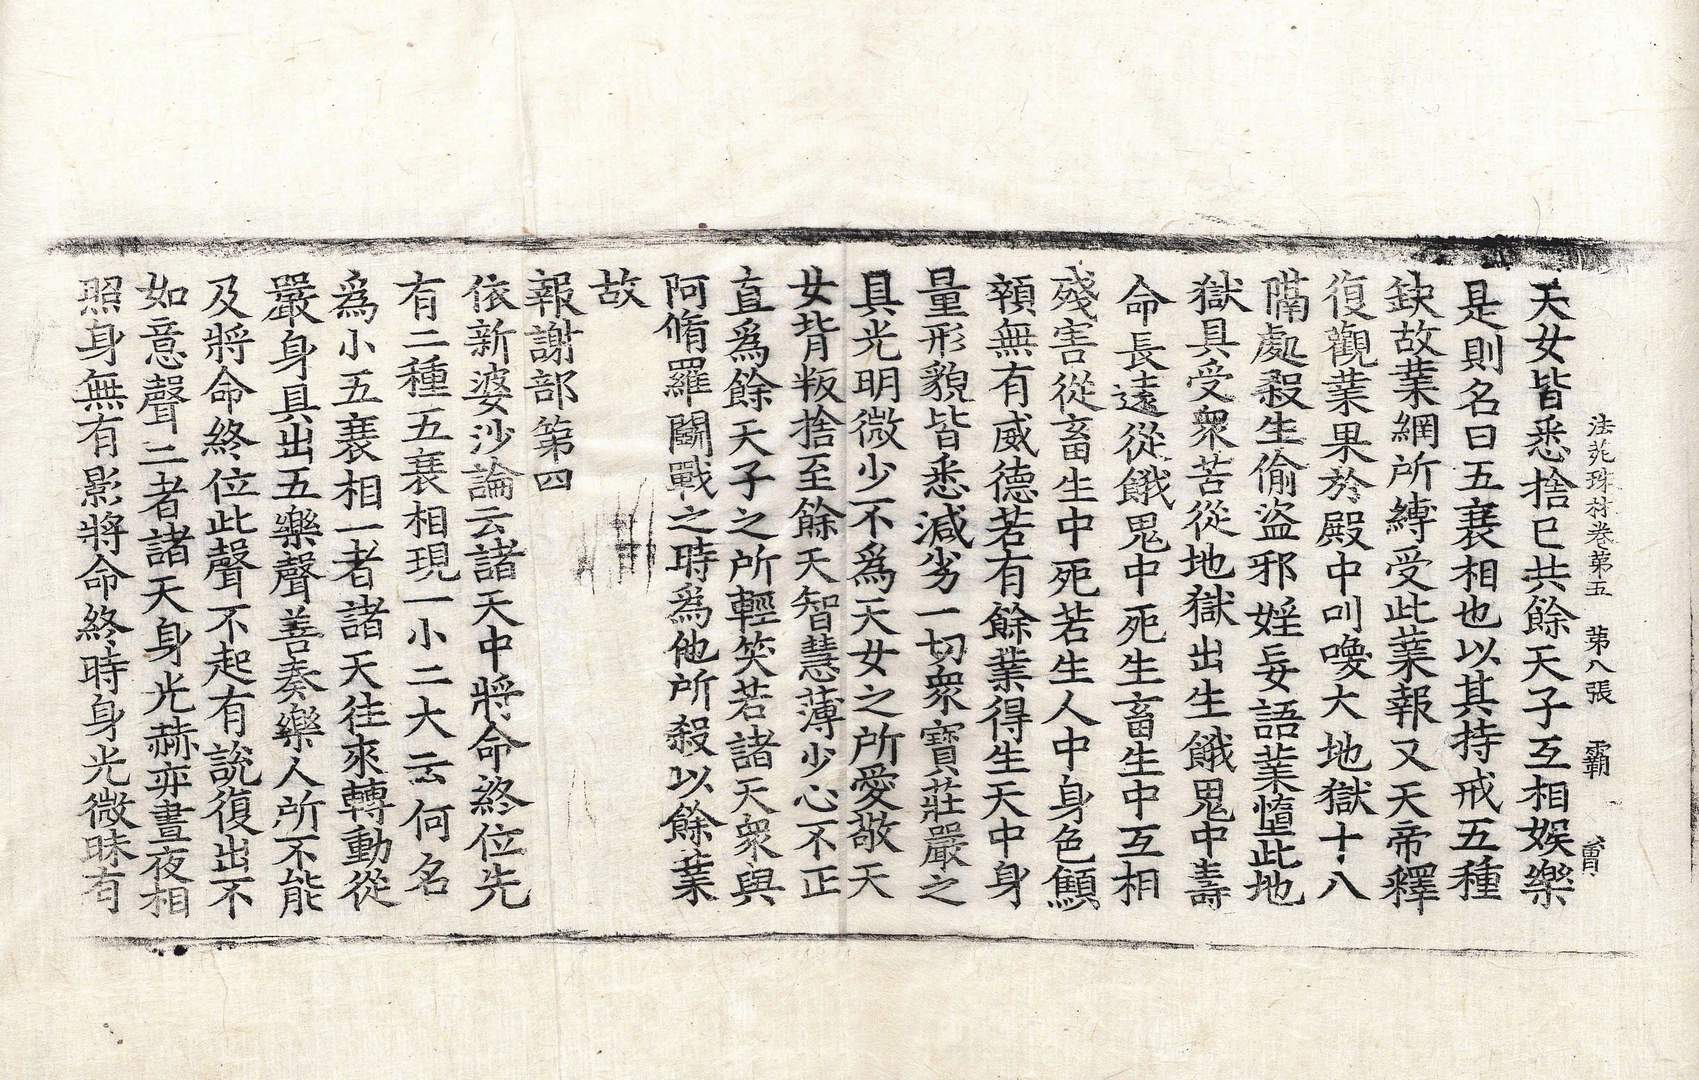 法苑珠林卷第五　第八張　霸　曺
天女皆悉捨已共餘天子互相娛樂
是則名曰五衰相也以其持戒五種
缺故業網所縛受此業報又天帝釋
復觀業果於殿中叫喚大地獄十八
隔處殺生偷盜邪婬妄語業墮此地
獄具受衆苦從地獄出生餓鬼中壽
命長遠從餓鬼中死生畜生中互相
殘害從畜生中死若生人中身色顦
顇無有威德若有餘業得生天中身
量形貌皆悉減劣一切衆寶莊嚴之
具光明微少不爲天女之所愛敬天
女背叛捨至餘天智慧薄少心不正
直爲餘天子之所輕笑若諸天衆與
阿脩羅鬪戰之時爲他所殺以餘業
故
報謝部第四
依新婆沙論云諸天中將命終位先
有二種五衰相現一小二大云何名
爲小五衰相一者諸天往來轉動從
嚴身具出五樂聲善奏樂人所不能
及將命終位此聲不起有說復出不
如意聲二者諸天身光赫弈晝夜相
照身無有影將命終時身光微昧有